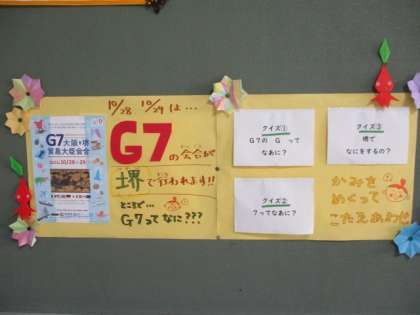 G7大阪・堺
貿易大臣会合
10/28 10/29 は…
G7の会合が
堺で行われます!!
ところで…
G7ってなに???
クイズ①
G7の G って
なあに?
クイズ③
堺で
なにをするの?
クイズ②
7ってなあに?
かみを
めくって
こたえあわせ